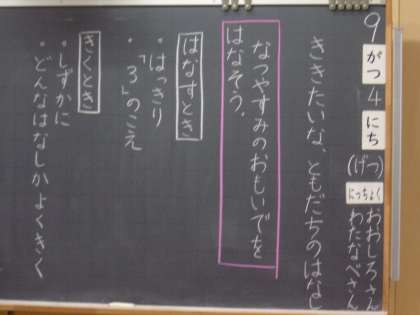 9がつ4にち(げつ)
にっちょく
おおしろさん
わたなべさん
ききたいな、ともだちのはなし
なつやすみのおもいでを
はなそう。
はなすとき
・はっきり
・「3」のこえ
きくとき
・しずかに
・どんなはなしかよくきく